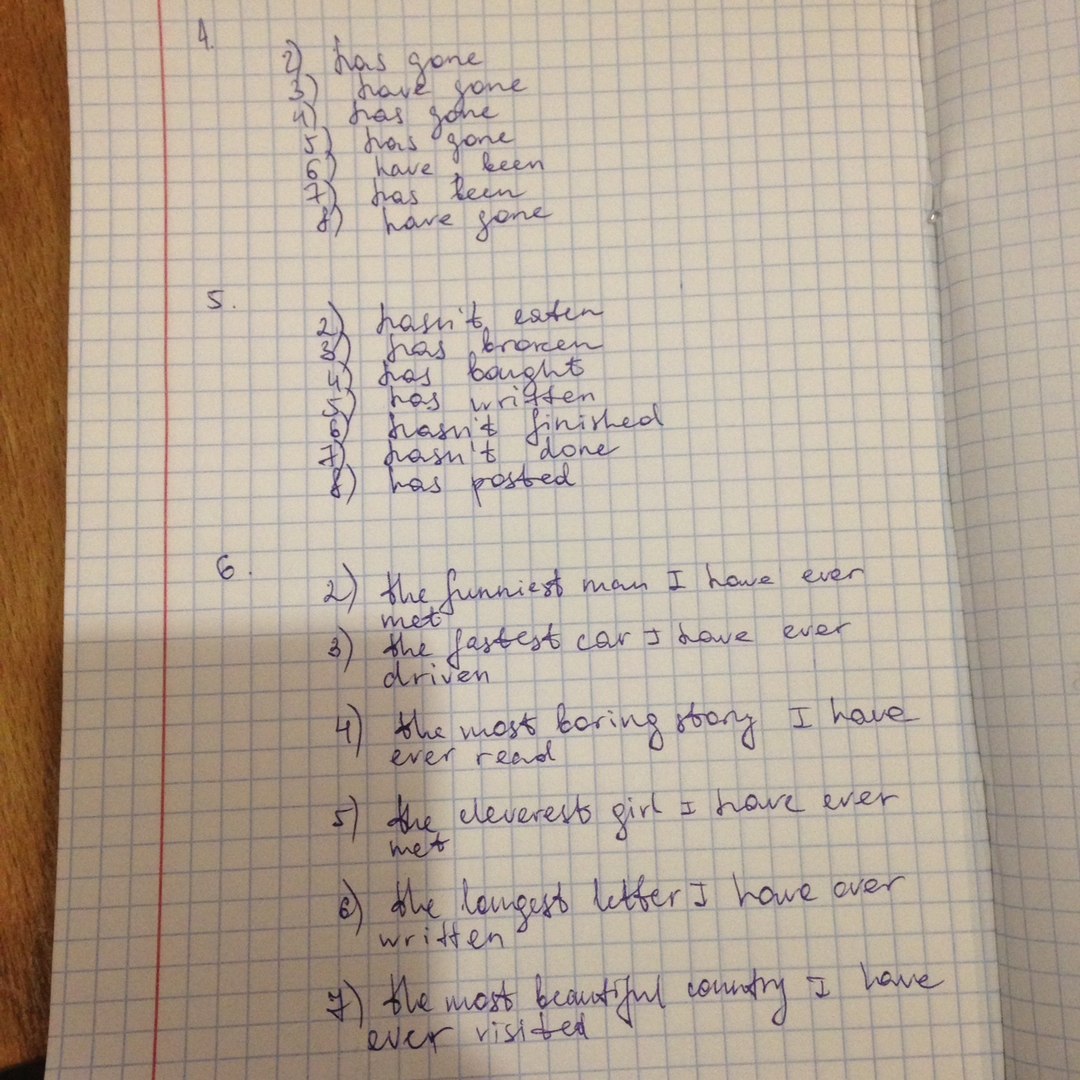 4.
2) has gone
3) have gone
4) has gone
5) has gone
6) have been
7) has been
8) have gone
5.
2) hasn't eaten
3) has broken
4) has bought
5) has written
6) hasn't finished
7) hasn't done
8) has posted
6.
2) the funniest man I have ever
met
3) the fastest car I have ever
driven
4) the most boring story I have
ever read
5) the cleverest girl I have ever
met
6) the longest letter I have ever
written
7) the most beautiful country I have
ever visited